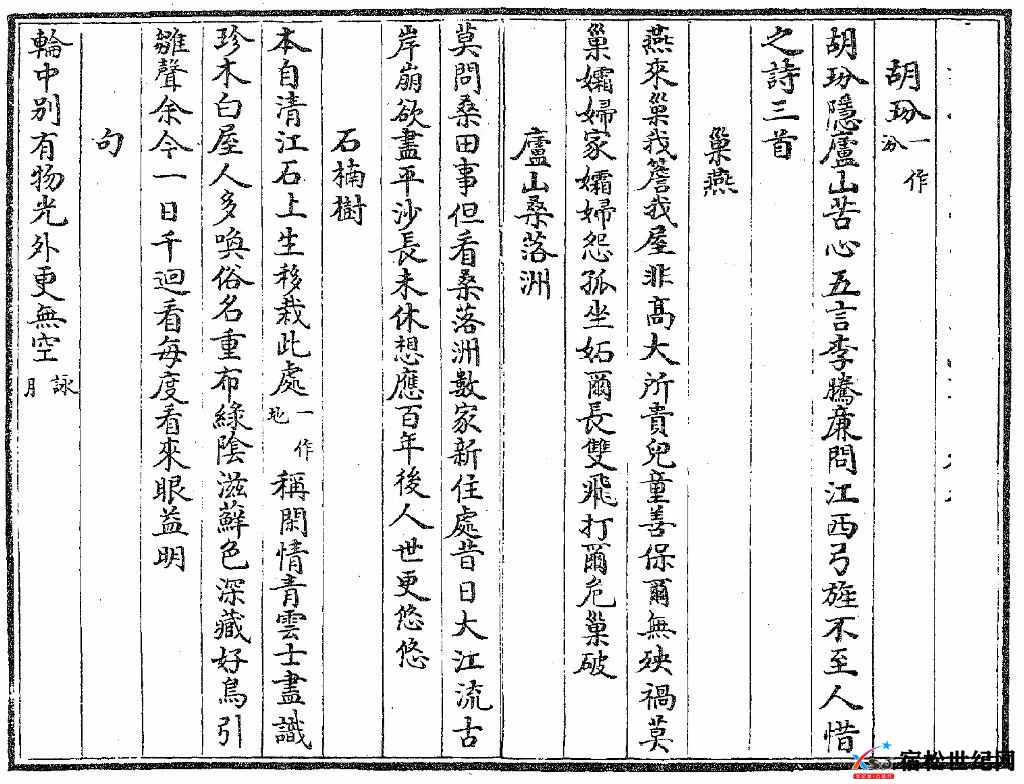 胡玢一作汾
胡玢隱廬山苦心五言李騰廉問江西弓旌不至人惜
之詩三首
巢燕
燕來巢我簷我屋非高大所貴兒童善保爾無殃禍莫
巢孀婦家孀婦怨孤坐妬爾長雙飛打爾危巢破
廬山桑落洲
莫問桑田事但看桑落洲數家新住處昔日大江流古
岸崩欲盡平沙長未休想應百年後人世更悠悠
石楠樹
本自清江石上生移栽此處一作地稱閑情青雲士盡識
珍木白屋人多喚俗名重布綠陰滋蘚色深藏好鳥引
雛聲余今一日千迴看每度看來眼益明
句
輪中別有物光外更無空詠月
宿松世纪网